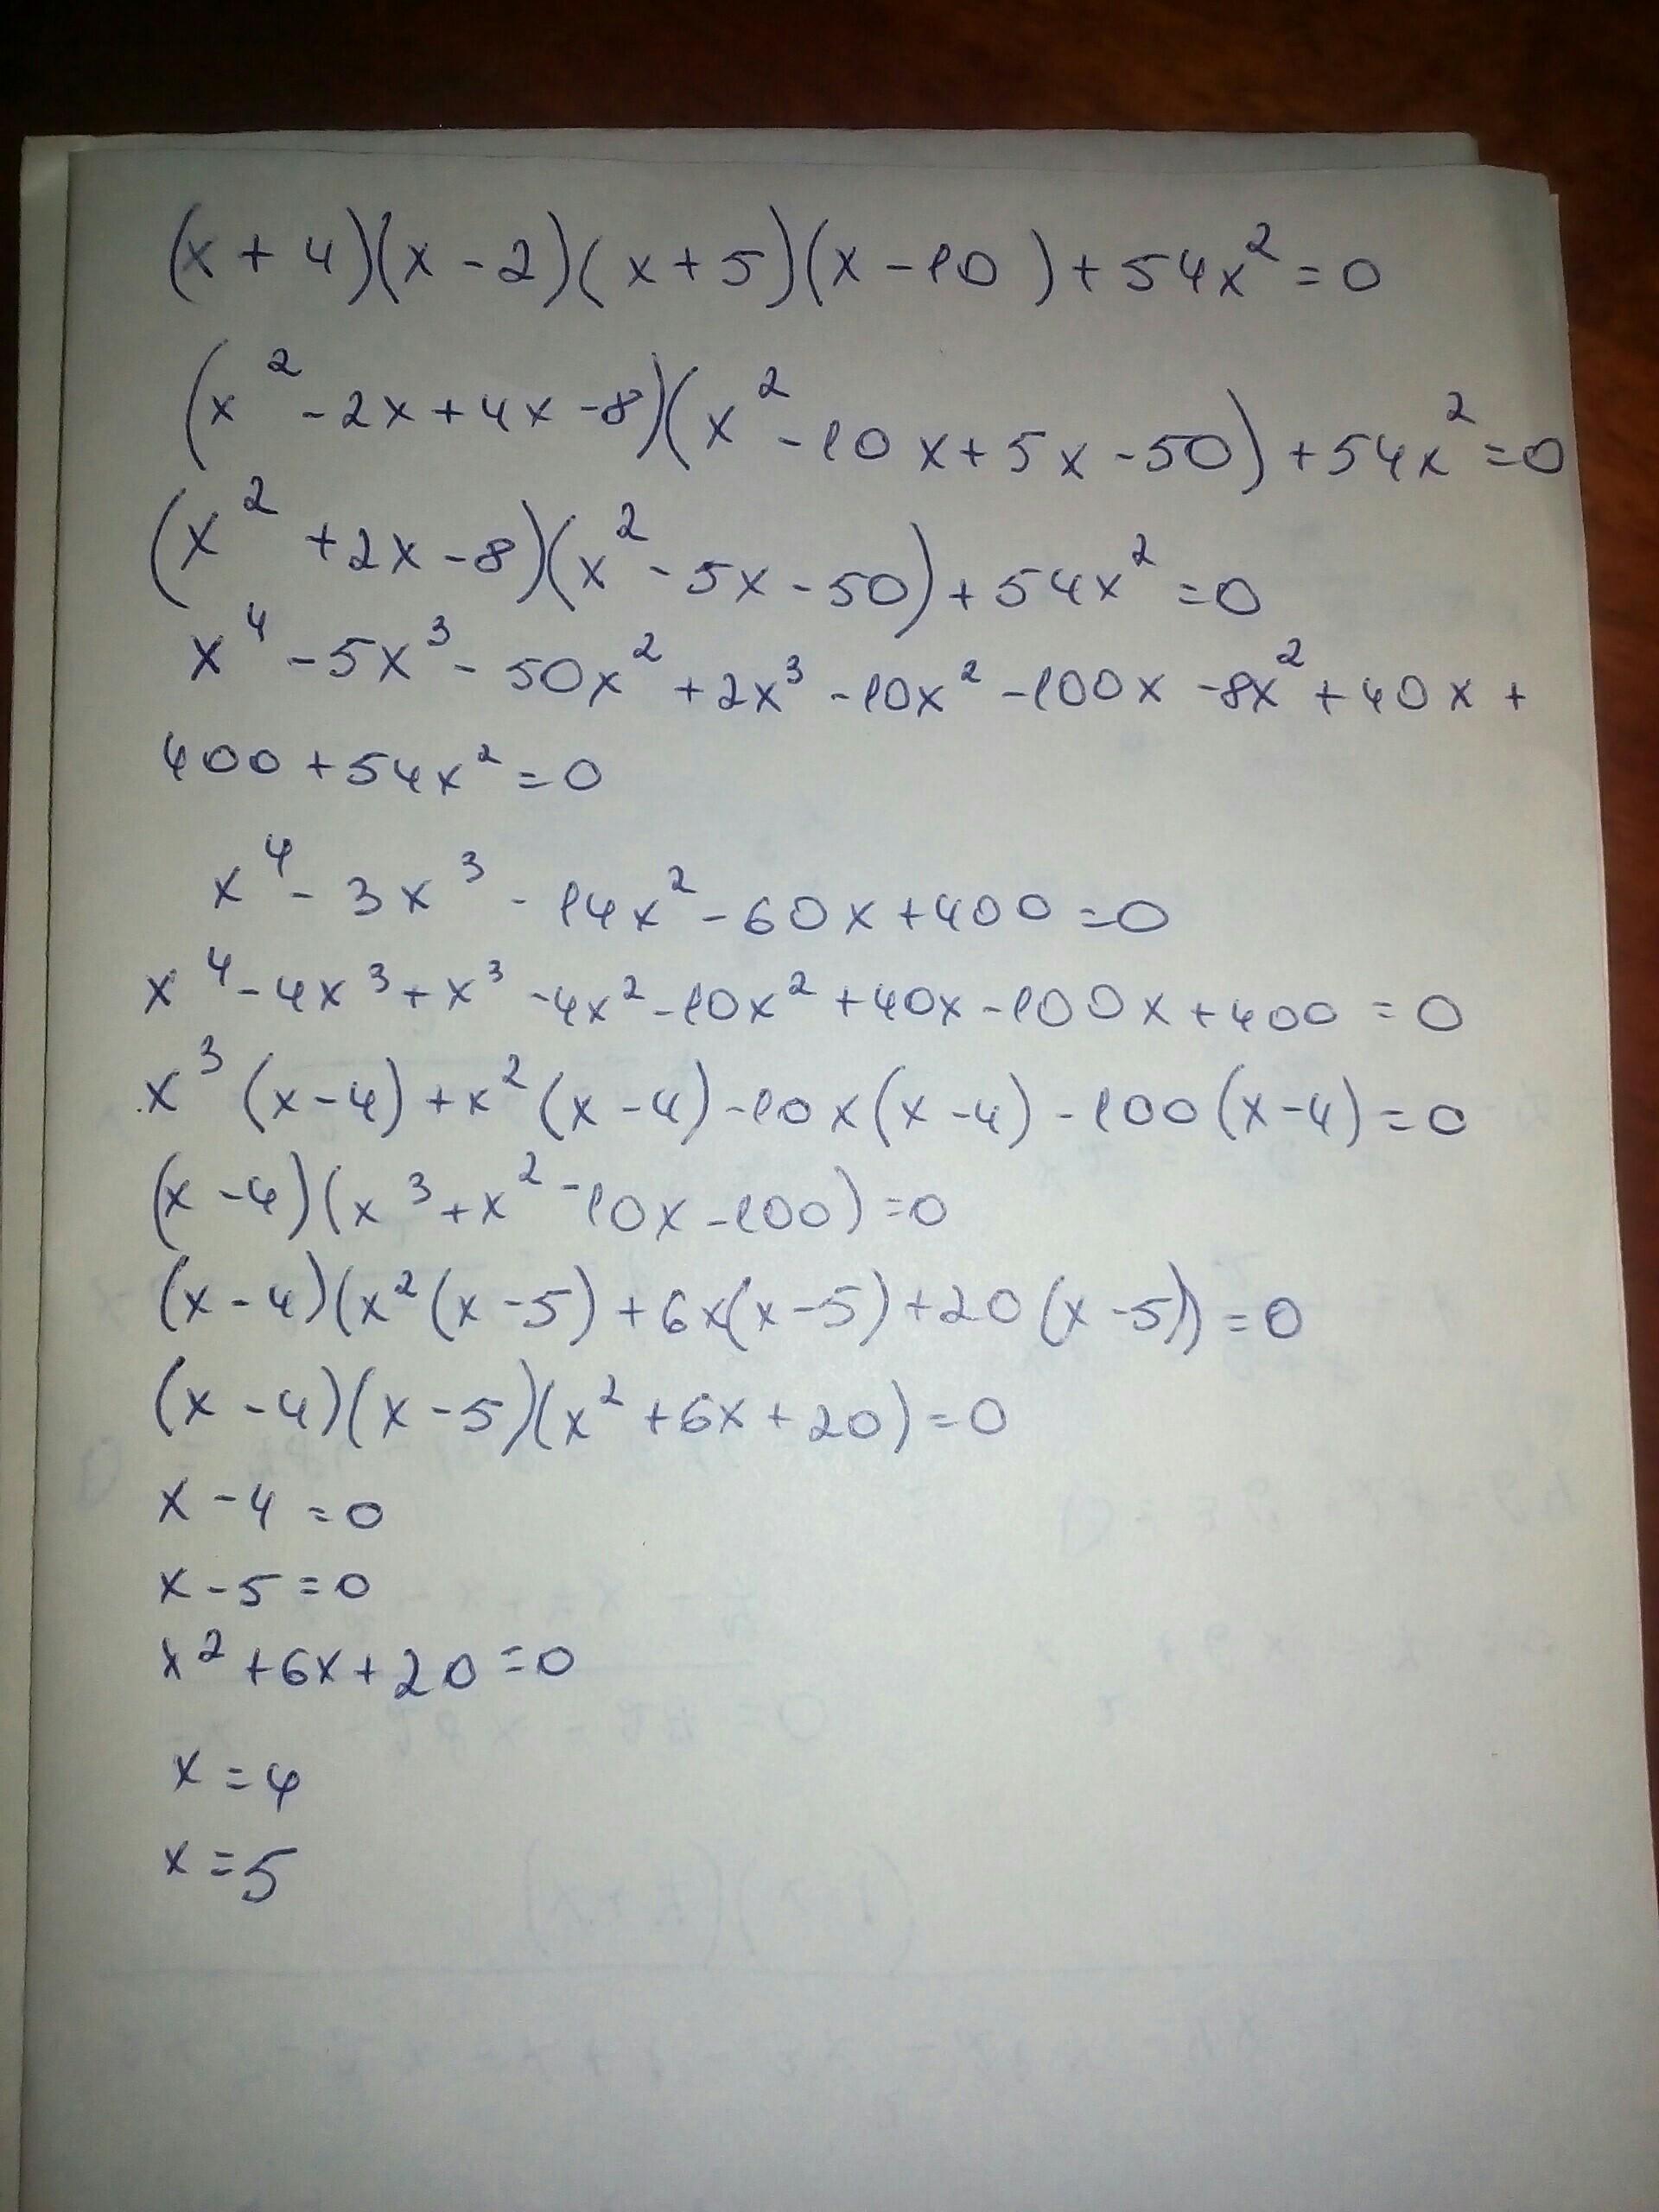 (x + 4)(x - 2)(x + 5)(x - 10) + 54x² = 0
(x² - 2x + 4x - 8)(x² - 10x + 5x - 50) + 54x² = 0
(x² + 2x - 8)(x² - 5x - 50) + 54x² = 0
x⁴ - 5x³ - 50x² + 2x³ - 10x² - 100x - 8x² + 40x +
400 + 54x² = 0
x⁴ - 3x³ - 14x² - 60x + 400 = 0
x⁴ - 4x³ + x³ - 4x² - 10x² + 40x - 100x + 400 = 0
x³(x - 4) + x²(x - 4) - 10x(x - 4) - 100(x - 4) = 0
(x - 4)(x³ + x² - 10x - 100) = 0
(x - 4)(x²(x - 5) + 6x(x - 5) + 20(x - 5)) = 0
(x - 4)(x - 5)(x² + 6x + 20) = 0
x - 4 = 0
x - 5 = 0
x² + 6x + 20 = 0
x = 4
x = 5